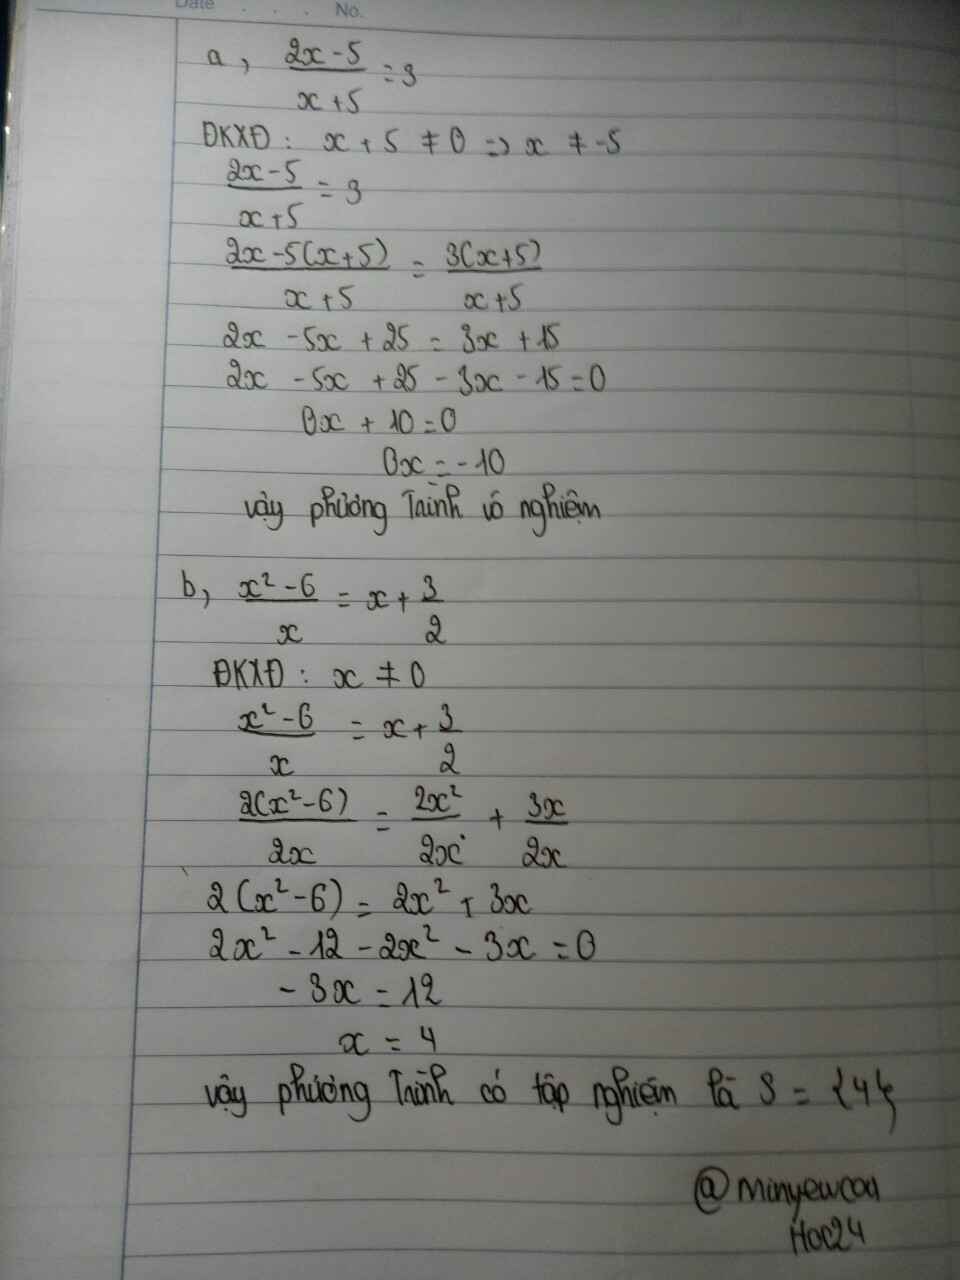 Date . . . No.
a, (2x-5)/(x+5) = 3
ĐKXĐ: x + 5 ≠ 0 => x ≠ -5
(2x-5)/(x+5) = 3
(2x-5(x+5))/(x+5) = (3(x+5))/(x+5)
2x - 5x + 25 = 3x + 15
2x - 5x + 25 - 3x - 15 = 0
0x + 10 = 0
0x = -10
vậy phương Trình vô nghiệm
b, (x²-6)/x = x + 3/2
ĐKXĐ: x ≠ 0
(x²-6)/x = x + 3/2
(2(x²-6))/(2x) = (2x²)/(2x) + (3x)/(2x)
2(x²-6) = 2x² + 3x
2x² - 12 - 2x² - 3x = 0
-3x = 12
x = 4
vậy phương Trình có tập nghiệm là S = {4}
@minyewcou
Hoc24